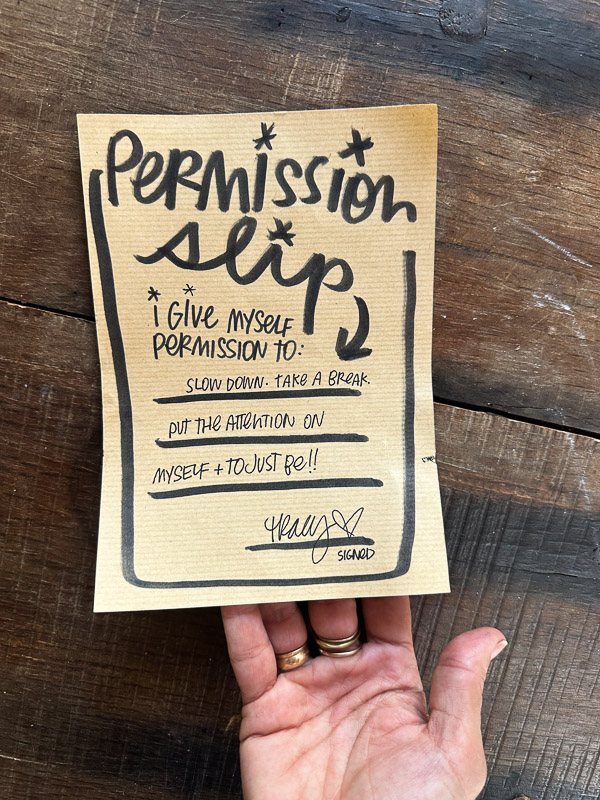 PERMISSION
slip
i GIVE MYSELF
PERMISSION TO:
SLOW DOWN. TAKE A BREAK.
PUT THE ATTENTION ON
MYSELF + TO JUST Be!!
tracy
SIGNED